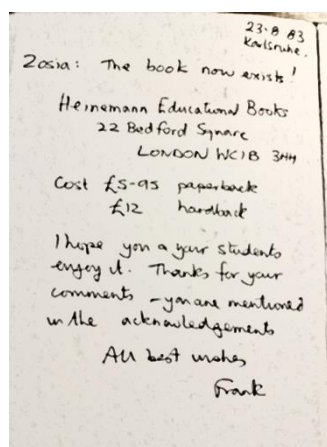 23·8 83
Karlsruhe.
Zosia: The book now exists!
Heinemann Educational Books
22 Bedford Square
LONDON WC1B 3HH
Cost £5-95 paperback
£12 hardback
I hope you & your students
enjoy it. Thanks for your
comments - you are mentioned
in the acknowledgements
All best wishes
Frank